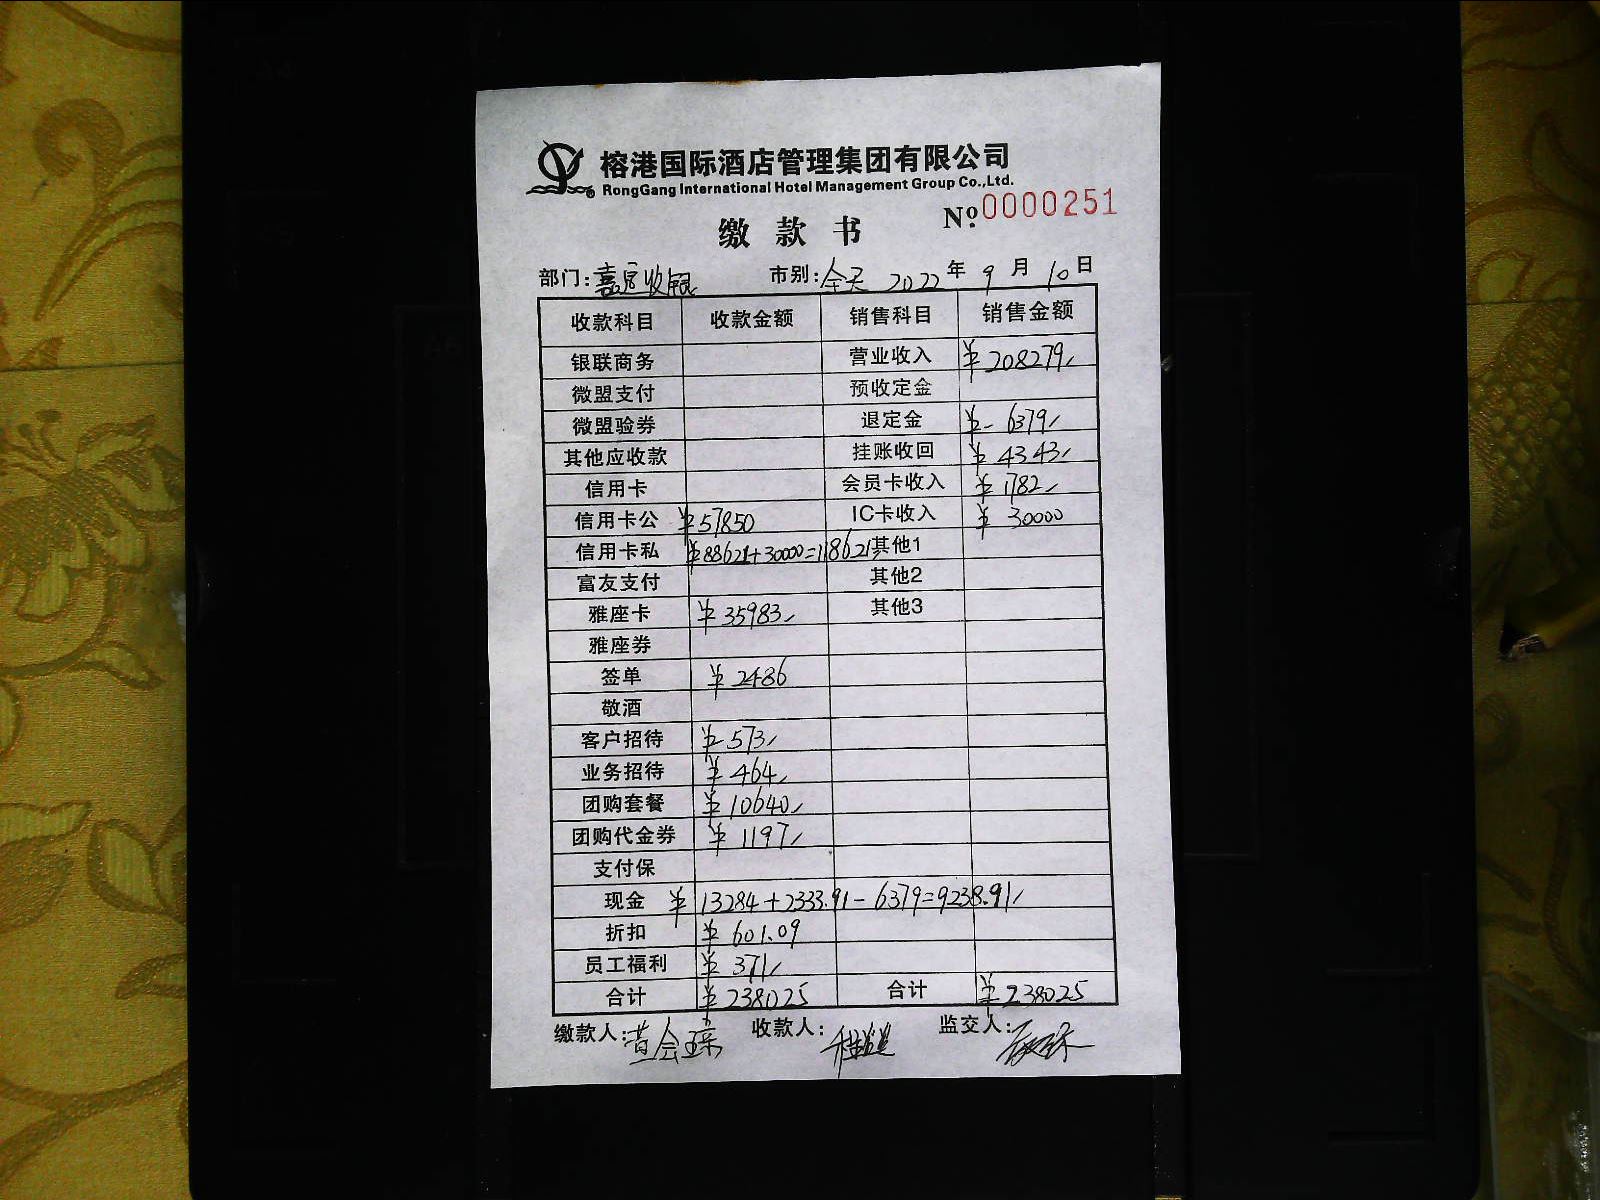 榕港国际酒店管理集团有限公司
RongGang International Hotel Management Group Co.,Ltd.
缴款书 Nº.0000251
部门:嘉宾收银 市别:全天 2022年9月10日
收款科目 收款金额 销售科目 销售金额
银联商务 营业收入 ¥208279
微盟支付 预收定金
微盟验券 退定金 ¥-6379
其他应收款 挂账收回 ¥4343
信用卡 会员卡收入 ¥1782
信用卡公 ¥57850 IC卡收入 ¥30000
信用卡私 ¥88621+30000=118621 其他1
富友支付 其他2
雅座卡 ¥35983 其他3
雅座券
签单 ¥2486
敬酒
客户招待 ¥573
业务招待 ¥464
团购套餐 ¥10640
团购代金券 ¥1197
支付保
现金 ¥13284+2333.91-6379=9238.91
折扣 ¥601.09
员工福利 ¥371
合计 ¥238025 合计 ¥238025
缴款人: 收款人: 监交人: